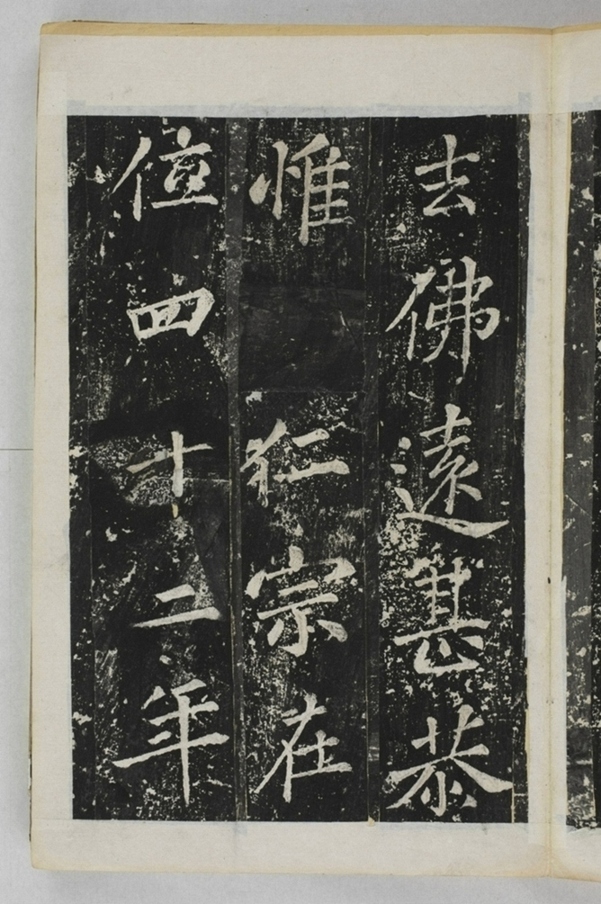 去佛遠甚恭
惟 仁宗在
位四十二年